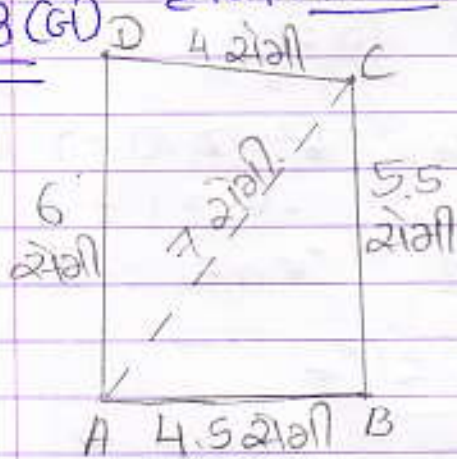 (G)
D 4 સેમી C
6 સેમી
7 સેમી
5.5 સેમી
A 4.5 સેમી B